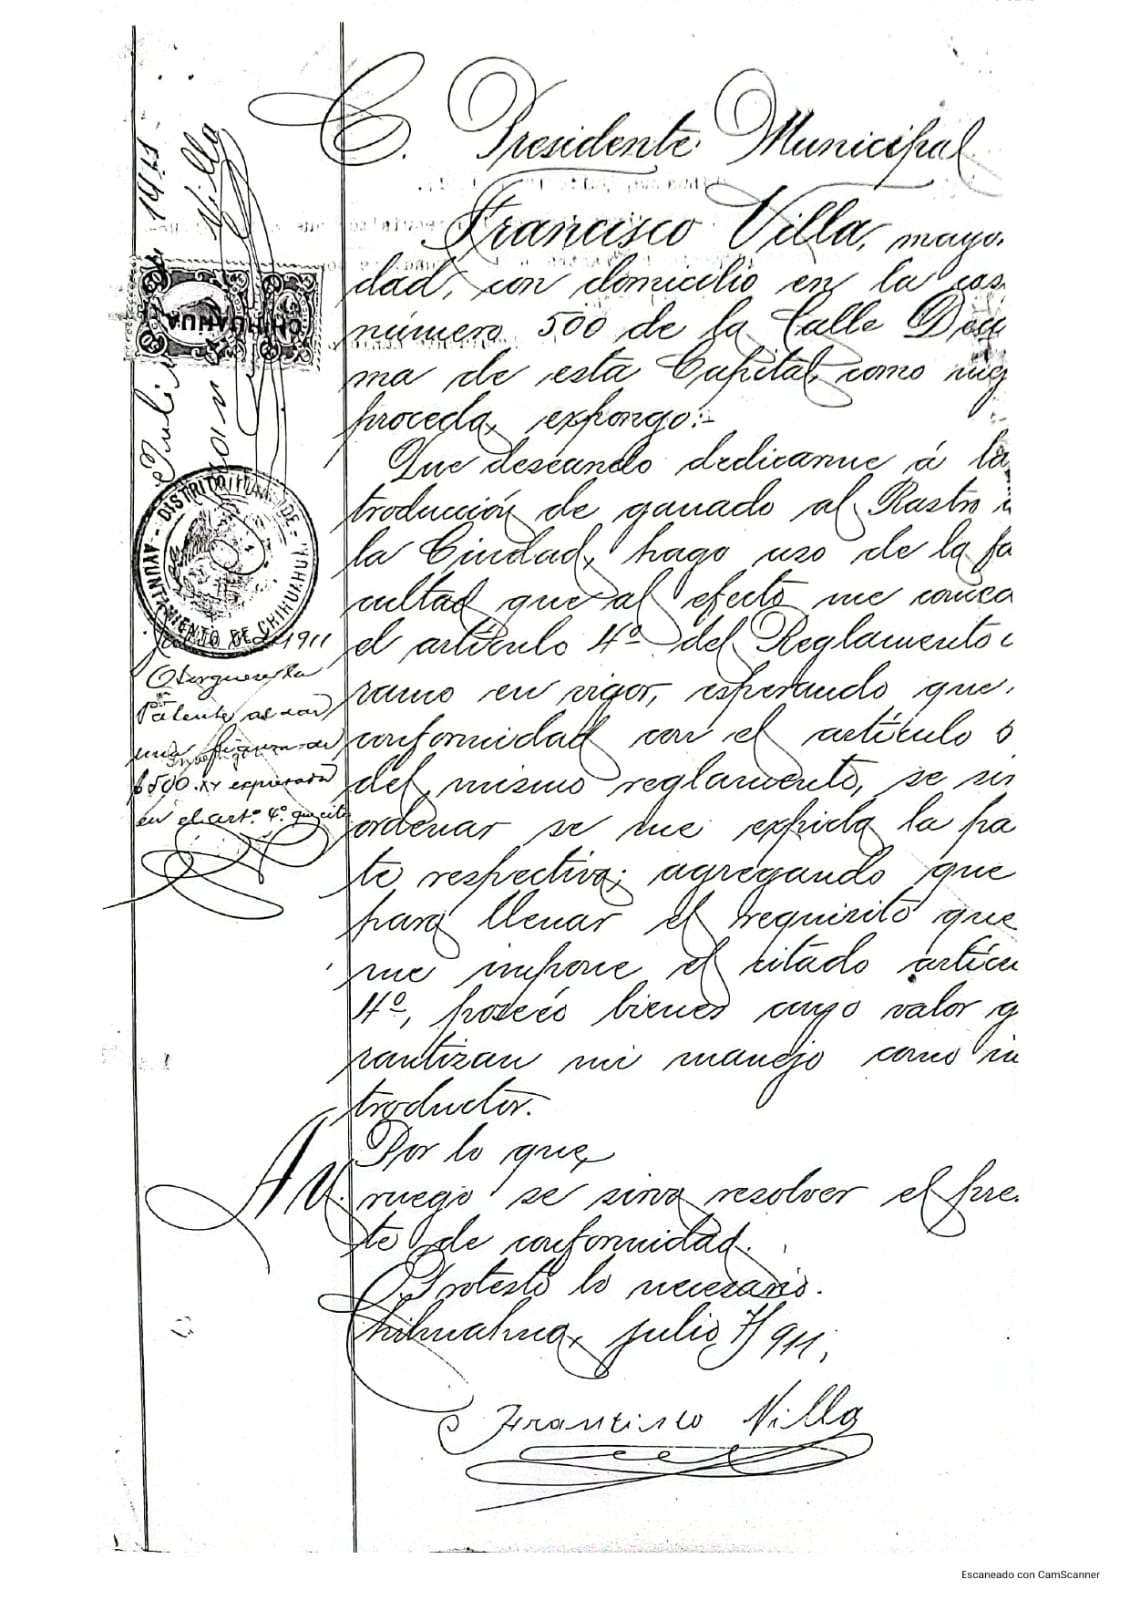 C. Presidente Municipal
Francisco Villa, mayo.
dad, con domicilio en la cas
número 500 de la Calle Déci
ma de esta Capital, como mej
proceda, expongo:-
Que deseando dedicarme á la
troducción de ganado al Rastro
la Ciudad, hago uso de la fa
cultad que al efecto me conce
el artículo 4º del Reglamento
ramo en vigor, esperando que,
conformidad con el artículo 5
del mismo reglamento, se sir
ordenar se me expida la pa
te respectiva; agregando que
para llenar el requisito que
me impone el citado artícu
4º, poseéo bienes cuyo valor g
rantizan mi manejo como in
troductor.
Por lo que,
A U. ruego se sirva resolver el pre.
te de conformidad.
Protesto lo necesario.
Chihuahua, julio 7/911,
Francisco Villa
1911
Villa
Julio
CHIHUAHUA
AYUNTAMIENTO DE CHIHUAHUA
DISTRITO ITURBIDE
1911
Otorguese la
Patente al dar
una fianza de
$500.°° expresada
en el art.° 4.° que cita
Escaneado con CamScanner